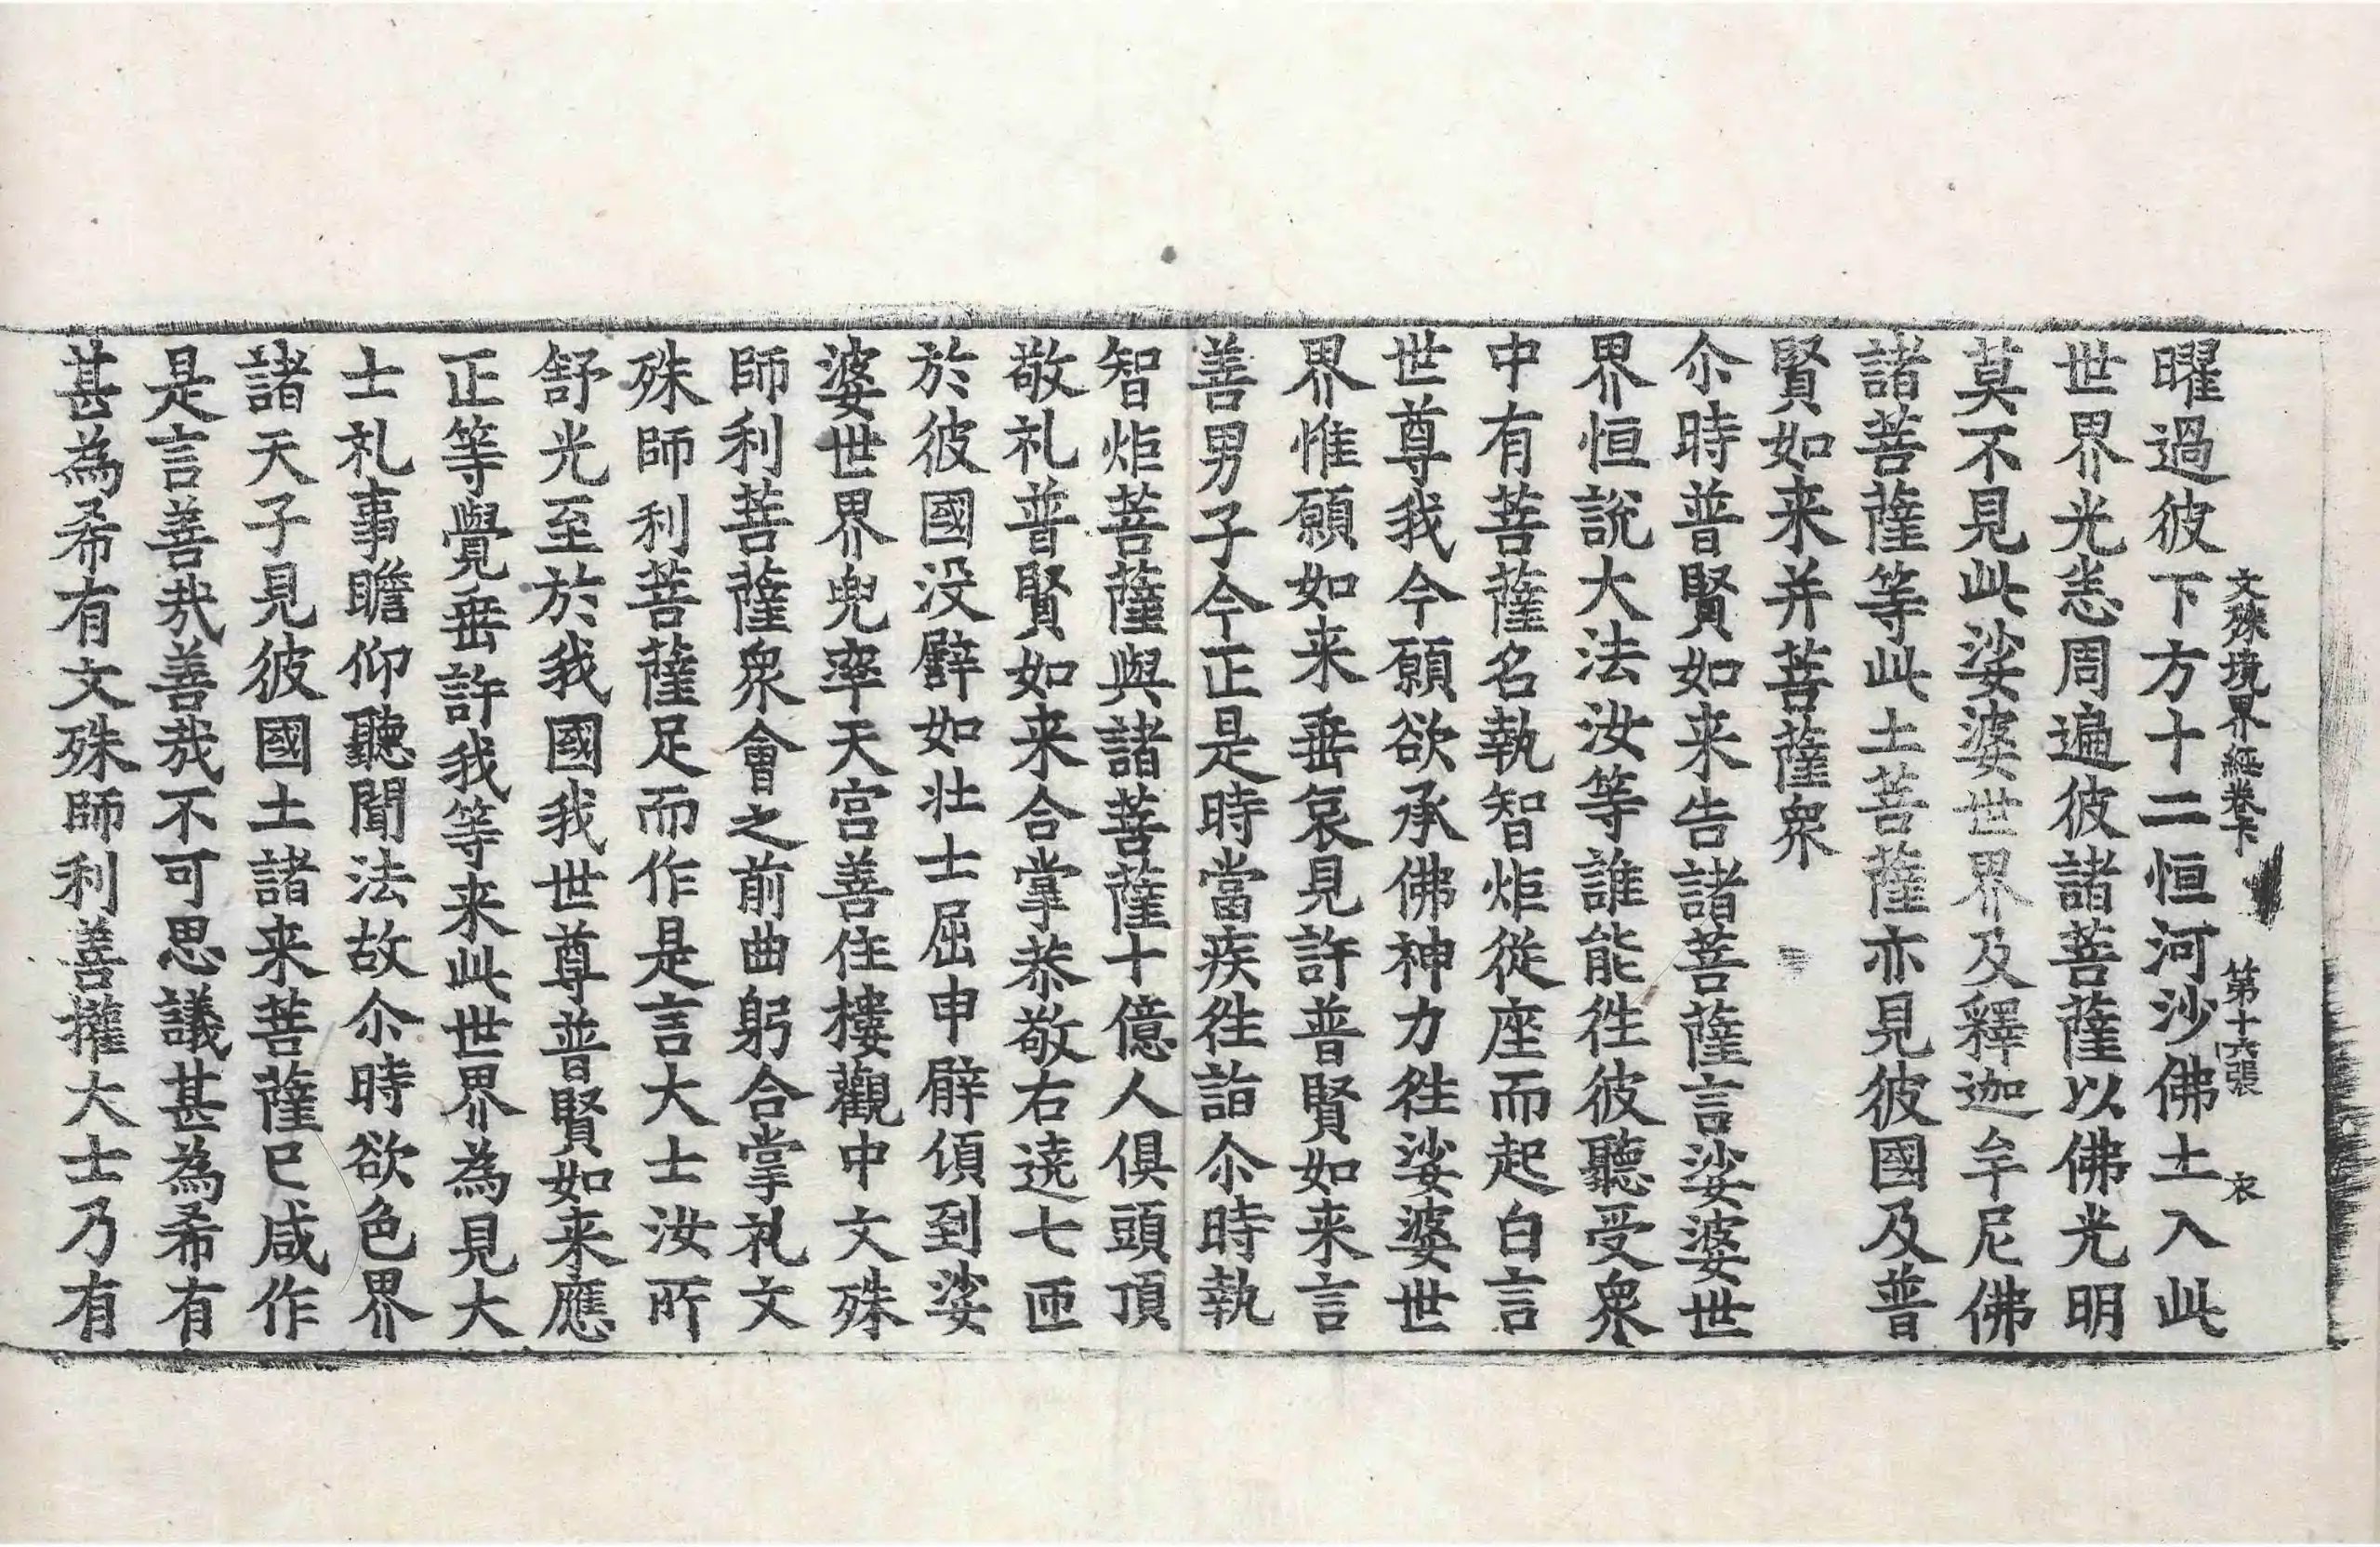 文殊境界經卷下 第十六張 衣
曜過彼下方十二恒河沙佛土入此
世界光恙周遍彼諸菩薩以佛光明
莫不見此娑婆世界及釋迦牟尼佛
諸菩薩等此土菩薩亦見彼國及普
賢如来并菩薩衆
尒時普賢如来告諸菩薩言娑婆世
界恒說大法汝等誰能徃彼聽受衆
中有菩薩名執智炬從座而起白言
世尊我今願欲承佛神力徃娑婆世
界惟願如来垂哀見許普賢如来言
善男子今正是時當疾徃詣尒時執
智炬菩薩與諸菩薩十億人俱頭頂
敬礼普賢如来合掌恭敬右遶七匝
於彼國没臂如壮士屈申臂傾到娑
婆世界兜率天宮善住樓觀中文殊
師利菩薩衆會之前曲躬合掌礼文
殊師利菩薩足而作是言大士汝所
舒光至於我國我世尊普賢如来應
正等覺垂許我等来此世界為見大
士礼事瞻仰聽聞法故尒時欲色界
諸天子見彼國土諸来菩薩已咸作
是言善哉善哉不可思議甚為希有
甚為希有文殊師利善權大士乃有